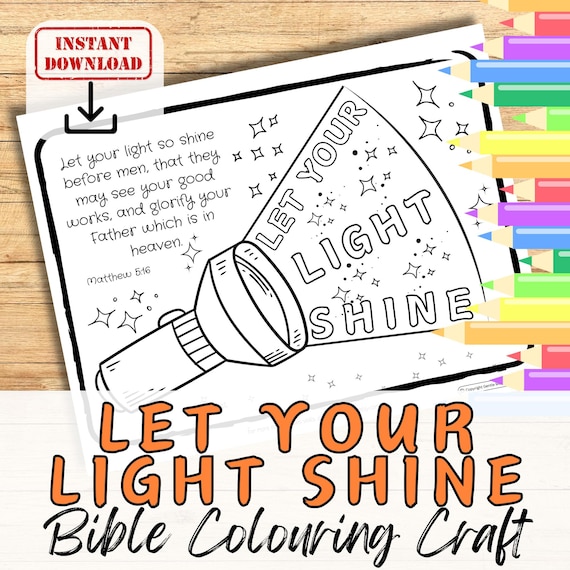 INSTANT
DOWNLOAD
Let your light so shine
before men, that they
may see your good
works, and glorify your
Father which is in
heaven.
Matthew 5:16
LET YOUR
LIGHT
SHINE
LET YOUR
LIGHT SHINE
Bible Colouring Craft